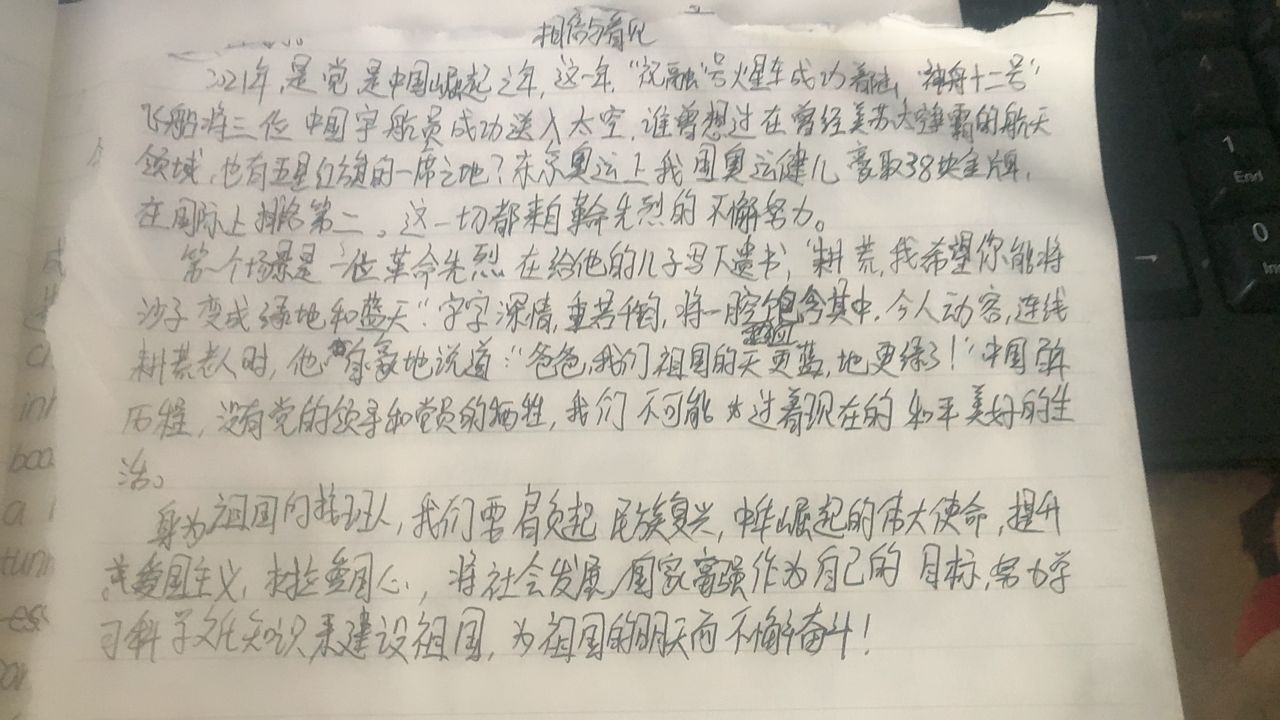 相信与看见
2021年,是党,是中国崛起之年,这一年,"祝融"号火星车成功着陆,"神舟十二号"
飞船将三位中国宇航员成功送入太空,谁曾想过在曾经美苏太空争霸的航天
领域,也有五星红旗的一席之地?东京奥运上我国奥运健儿豪取38块金牌,
在国际上排名第二。这一切都来自革命先烈的不懈努力。
第一个场景是一位革命先烈在给他的儿子写下遗书,"耕荒,我希望你能将
沙子变成绿地和蓝天".字字深情,重若千钧,将一腔饱含其中.令人动容,连线
耕荒老人时,他自豪地说道:"爸爸,我们祖国的天更蓝,地更绿了!"中国
历程,没有党的领导和党员的牺牲,我们不可能过着现在的和平美好的生
活。
身为祖国的接班人,我们要肩负起民族复兴,中华崛起的伟大使命,提升
爱国主义,树立爱国心,将社会发展,国家富强作为自己的目标,努力学
习科学文化知识来建设祖国,为祖国的明天而不懈奋斗!
1
End
0